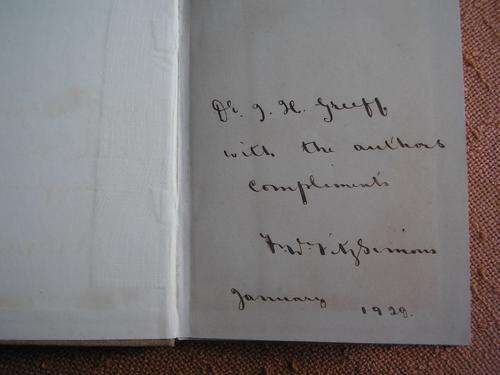 Dr. J. H. Greeff
with the authors
compliments
Fredk FitzSimons
January 1929.